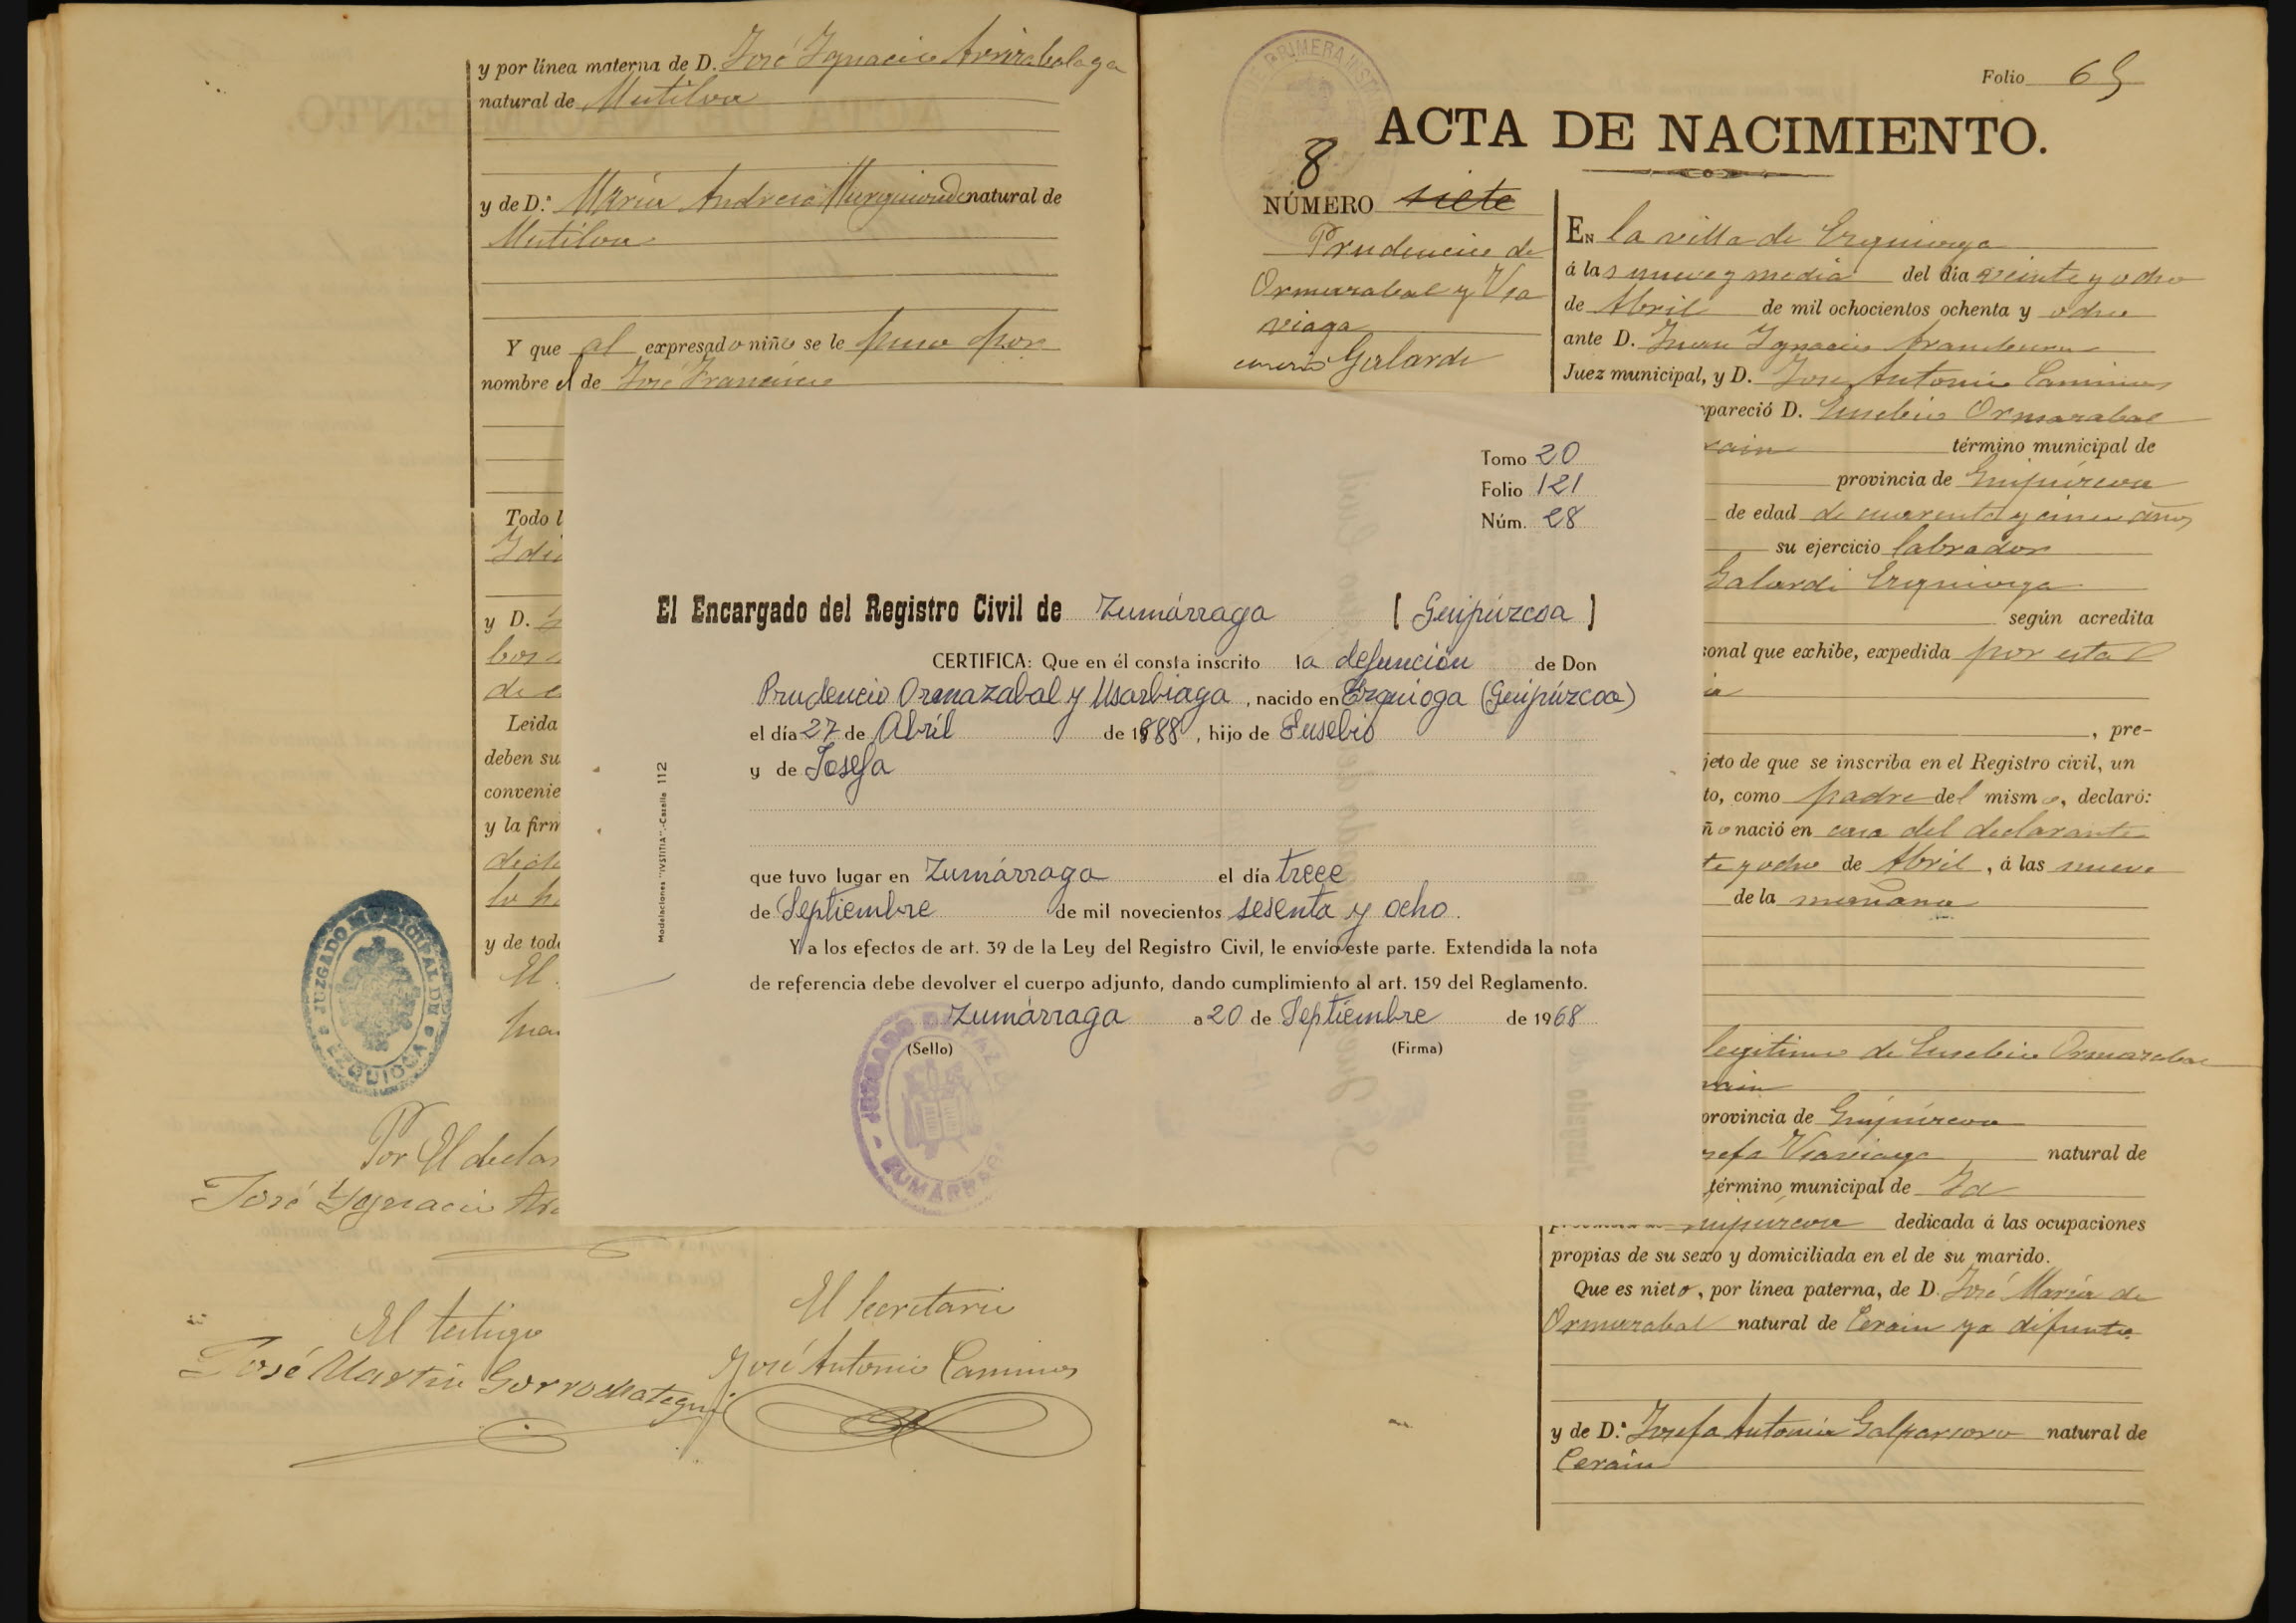 y por línea materna de D. José Ygnacio Arrizabalaga
natural de Mutiloa
y de D.ª María Andresa natural de
Mutiloa
Y que al expresado niño se le puso por
nombre el de José Francisco
Todo l
y D.
de
Leida
deben su
convenie
y la firm
y de tod
El
JUZGADO MUNICIPAL DE EZQUIOGA
Por El declar
José Ygnacio
El testigo
José Martín Gorrochategui
El Secretario
José Antonio Caminos
Folio 65
ACTA DE NACIMIENTO.
8
NÚMERO siete
Prudencio de
Ormazabal y Usa
viaga
caserio Galardi
EN la villa de Ezquioga
á las nueve y media del día veinte y ocho
de Abril de mil ochocientos ochenta y ocho
ante D. Juan Ygnacio Aramburu
Juez municipal, y D. José Antonio Caminos
pareció D. Eusebio Ormazabal
rain término municipal de
provincia de Guipúzcoa
de edad de cuarenta y cinco años
su ejercicio labrador
Galardi Ezquioga
según acredita
sonal que exhibe, expedida por esta
, pre-
jeto de que se inscriba en el Registro civil, un
to, como padre del mismo, declaró:
ño nació en casa del declarante
te y ocho de Abril, á las nueve
de la mañana
legitimo de Eusebio Ormazabal
rain
provincia de Guipúzcoa
sefa Usaviaga natural de
término municipal de Id
Guipúzcoa dedicada á las ocupaciones
propias de su sexo y domiciliada en el de su marido.
Que es nieto, por línea paterna, de D. José María de
Ormazabal natural de Cerain ya difunto
y de D.ª Josefa Antonia Galparsoro natural de
Cerain
Tomo 20
Folio 121
Núm. 28
El Encargado del Registro Civil de Zumárraga [ Guipúzcoa ]
CERTIFICA: Que en él consta inscrito la defunción de Don
Prudencio Ormazabal y Usarbiaga, nacido en Ezquioga (Guipúzcoa)
el día 27 de Abril de 1888, hijo de Eusebio
y de Josefa
que tuvo lugar en Zumárraga el día trece
de Septiembre de mil novecientos sesenta y ocho.
Y a los efectos de art. 39 de la Ley del Registro Civil, le envío este parte. Extendida la nota
de referencia debe devolver el cuerpo adjunto, dando cumplimiento al art. 159 del Reglamento.
Zumárraga a 20 de Septiembre de 1968
(Sello) (Firma)
JUZGADO DE PAZ
ZUMARRAGA
Modelaciones "IVSTITIA".-Casalla 112